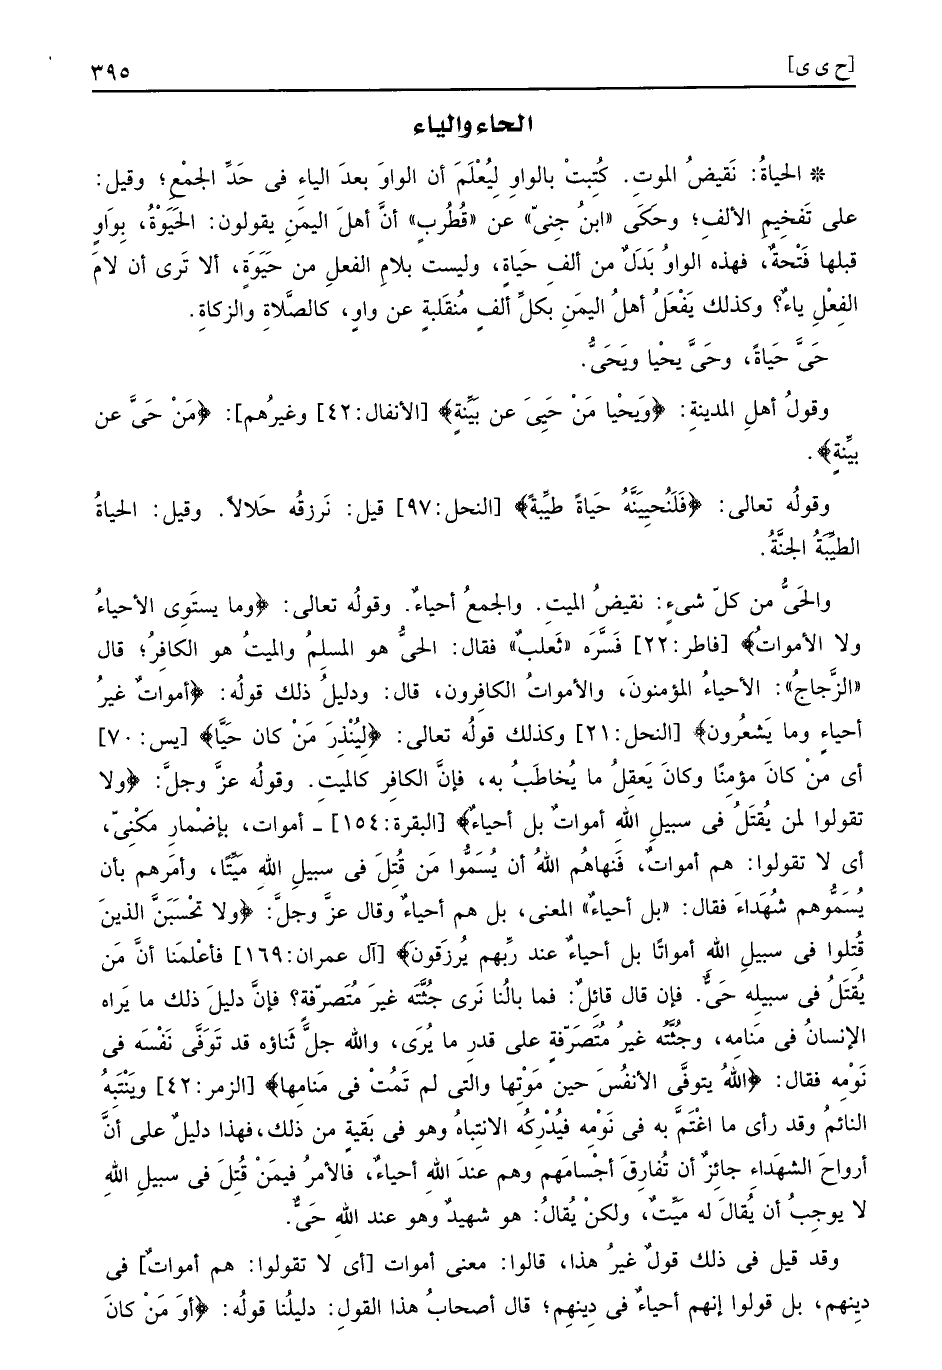 [ح ى ى] ٣٩٥
الحاء والياء
* الحياةُ: نَقيضُ الموتِ. كُتِبتْ بالواوِ لِيُعْلَمَ أن الواوَ بعدَ الياءِ فى حَدِّ الجمْعِ؛ وقيل:
على تَفْخيمِ الألفِ؛ وحَكَى «ابنُ جنىّ» عن «قُطْربٍ» أنَّ أهلَ اليمَنِ يقولون: الحَيَوْةُ، بِواوٍ
قبلها فَتْحةٌ، فهذه الواوُ بَدَلٌ من ألفِ حَياةٍ، وليست بلامِ الفعلِ من حَيَوَةٍ، ألا تَرى أن لامَ
الفِعْلِ ياءٌ؟ وكذلك يَفْعَلُ أهلُ اليمَنِ بكلِّ ألفٍ مُنقَلبةٍ عن واوٍ، كالصَّلاةِ والزكاةِ.
حَىَّ حَياةً، وحَىَّ يحْيا ويَحَىُّ.
وقولُ أهلِ المدينةِ: ﴿وَيحْيا مَنْ حَيِىَ عن بَيِّنةٍ﴾ [الأنفال:٤٢] وغيرُهم]: ﴿مَنْ حَىَّ عن
بيِّنةٍ﴾.
وقولُه تعالى: ﴿فَلَنُحيِيَنَّهُ حَياةً طيِّبةً﴾ [النحل:٩٧] قيل: نَرزقُه حَلالاً. وقيل: الحياةُ
الطيِّبَةُ الجنَّةُ.
والحَىُّ من كلّ شىءٍ: نقيضُ الميتِ. والجمعُ أحياءٌ. وقولُه تعالى: ﴿وما يستَوِى الأحياءُ
ولا الأمواتُ﴾ [فاطر:٢٢] فَسَّرَه «ثَعلبٌ» فقال: الحىُّ هو المسلِمُ والميتُ هو الكافرُ؛ قال
«الزَّجاجُ»: الأحياءُ المؤمنونَ، والأمواتُ الكافرون، قال: ودليلُ ذلك قولُه: ﴿أمواتٌ غيرُ
أحياءٍ وما يَشعُرون﴾ [النحل:٢١] وكذلك قولُه تعالى: ﴿لِيُنْذِرَ مَنْ كان حَيًّا﴾ [يس:٧٠]
أى منْ كانَ مؤمنًا وكانَ يَعقِلُ ما يُخاطَبُ به، فإنَّ الكافرَ كالميتِ. وقولُه عزَّ وجلَّ: ﴿ولا
تقولوا لمن يُقتَلُ فى سبيلِ اللهِ أمواتٌ بل أحياءٌ﴾ [البقرة:١٥٤] ـ أموات، بإضْمارِ مكْنىّ،
أى لا تقولوا: هم أمواتٌ، فَنهاهُم اللهُ أن يُسَمُّوا مَن قُتِلَ فى سبيلِ اللهِ مَيِّتًا، وأمَرهم بأن
يُسَمُّوهم شُهَداءَ فقال: «بل أحياءٌ» المعنى، بل هم أحياءٌ وقال عزَّ وجلَّ: ﴿ولا تحْسَبَنَّ الذينَ
قُتِلوا فى سبيلِ اللهِ أمواتًا بل أحياءٌ عند ربِّهم يُرزَقونَ﴾ [آل عمران:١٦٩] فأعْلمَنا أنَّ مَن
يُقتَلُ فى سبيلِه حَىٌّ. فإن قال قائلٌ: فما بالُنا نَرى جُثَّتَه غيرَ مُتَصرّفةٍ؟ فإنَّ دليلَ ذلك ما يَراه
الإنسانُ فى مَنامِه، وجثَّتُه غيرُ مُتَصَرّفةٍ على قدرِ ما يُرَى، والله جلَّ ثَناؤه قد تَوَفَّى نَفْسَه فى
نَوْمِه فقال: ﴿اللهُ يتوفَّى الأنفُسَ حين مَوْتِها والتى لم تَمُتْ فى مَنامِها﴾ [الزمر:٤٢] ويَنْتَبِهُ
النائمُ وقد رأى ما اغْتَمَّ به فى نَوْمِه فيُدْرِكُه الانتباهُ وهو فى بَقيةٍ من ذلك،فهذا دليلٌ على أنَّ
أرواحَ الشهَداءِ جائزٌ أن تُفارِقَ أجْسامَهم وهم عندَ اللهِ أحياءٌ، فالأمرُ فيمَنْ قُتِلَ فى سبيلِ اللهِ
لا يوجبُ أن يُقالَ له مَيِّتٌ، ولكنْ يُقالُ: هو شهيدٌ وهو عند اللهِ حَىٌّ.
وقد قيل فى ذلك قولٌ غيرُ هذا، قالوا: معنى أموات [أى لا تقولوا: هم أمواتٌ] فى
دِينهم، بل قولوا إنهم أحياءٌ فى دِينِهم؛ قال أصحابُ هذا القول: دليلُنا قولُه: ﴿أوَ مَنْ كانَ